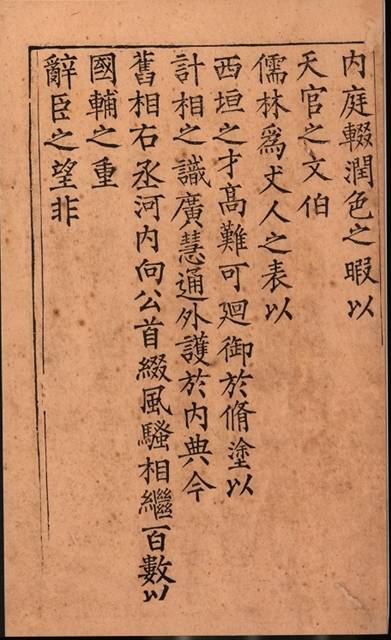 内庭輟潤色之暇以
天官之文伯
儒林爲丈人之表以
西垣之才髙難可廻御於脩塗以
計相之識廣慧通外護於内典今
舊相右丞河内向公首綴風騷相繼百數以
國輔之重
辭臣之望非